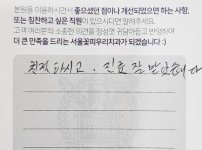 본원을 이용하시면서 좋으셨던 점이나 개선되었으면 하는 사항,
또는 칭찬하고 싶은 직원이 있으시다면 알려주세요.
고객 여러분의 소중한 의견을 정성껏 귀담아듣고 반영하여
더 큰 만족을 드리는 서울꽃피우리치과가 되겠습니다 :)
친절하시고. 진료 잘 받았습니다